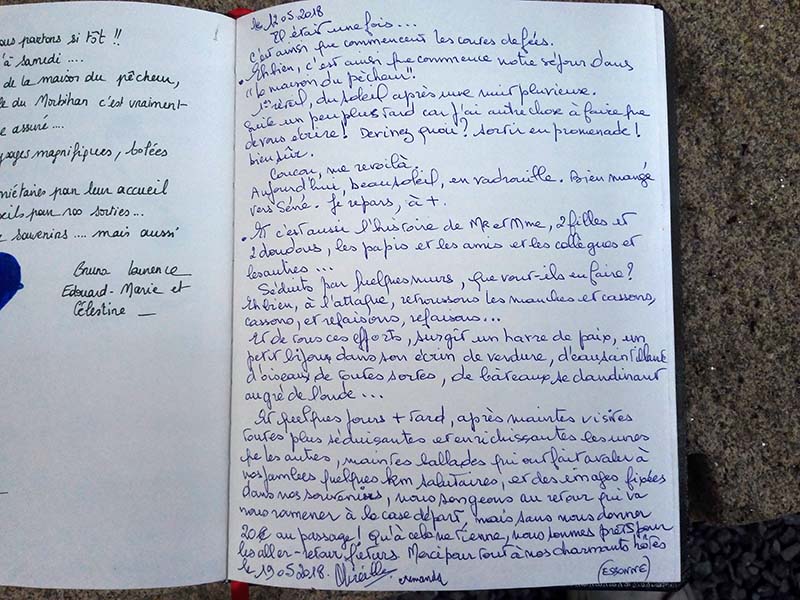 ous partons si tôt !!
'à samedi ....
de la maison du pêcheur,
le du Morbihan c'est vraiment
e assuré ....
ysages magnifiques, balées
riétaires pour leur accueil
seils pour nos sorties ...
e souvenirs .... mais aussi
Bruno Laurence
Edouard-Marie et
Célestine
le 12 05 2018
Il était une fois ...
C'est ainsi que commencent les contes de fées.
Eh bien, c'est ainsi que commence notre séjour dans
"la maison du pêcheur".
1er réveil, du soleil après une nuit pluvieuse.
suite un peu plus tard car j'ai autre chose à faire que
de vous écrire ! Devinez quoi ? Sortir en promenade !
bien sûr.
Coucou, me revoilà.
Aujourd'hui, beau soleil, en vadrouille. Bien mangé
vers Séné. Je repars, à +.
Et c'est aussi l'histoire de Mr et Mme, 2 filles et
2 doudous, les papis et les amis et les collègues et
les autres ...
Séduits par quelques murs, que vont-ils en faire ?
Eh bien, à l'attaque, retroussons les manches et cassons,
cassons, et refaisons, refaisons ...
Et de tous ces efforts, surgit un havre de paix, un
petit bijou dans son écrin de verdure, d'eau scintillante
d'oiseaux de toutes sortes, de bâteaux se dandinant
au gré de l'onde ...
Et quelques jours + tard, après maintes visites
toutes plus séduisantes et enrichissantes les unes
que les autres, maintes ballades qui ont fait avaler à
nos jambes quelques km salutaires, et des images fixées
dans nos souvenirs, nous songeons au retour qui va
nous ramener à la case départ mais sans nous donner
20€ au passage ! Qu'à cela ne tienne, nous sommes prêts pour
les aller-retour futurs. Merci pour tout à nos charmants hôtes
le 19 05 2018. Mireille
(ESSONNE)